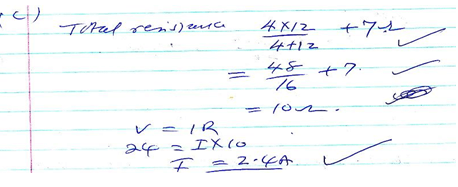 c)
Total resistance 4×12/4+12 + 7Ω
= 48/16 + 7.
= 10Ω.
V = IR
24 = I×10
I = 2.4A